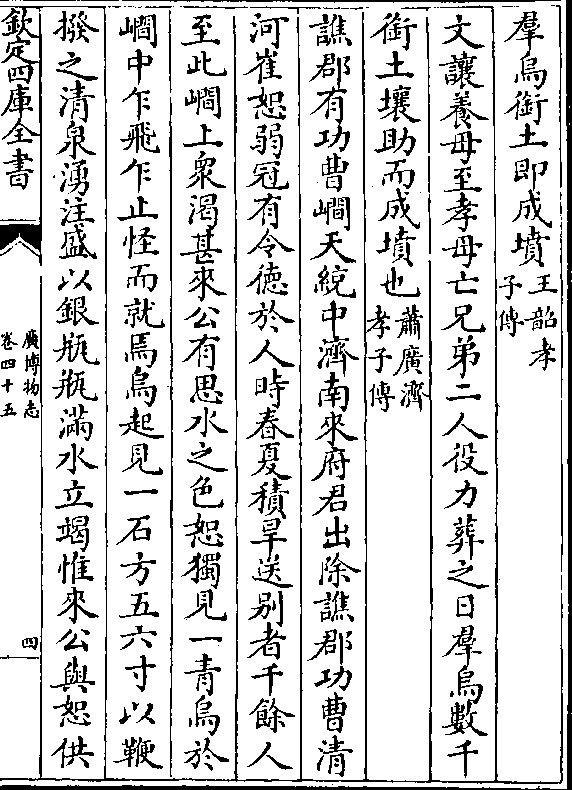 羣烏銜土即成墳王韶孝子傳
文讓養母至孝母亡兄弟二人役力葬之日羣烏數千
銜土壤助而成墳也蕭廣濟孝子傳
譙郡有功曹㵎天統中濟南來府君出除譙郡功曹清
河崔恕弱冠有令德於人時春夏積旱送别者千餘人
至此㵎上衆渴甚來公有思水之色恕獨見一青烏於
㵎中乍飛乍止怪而就焉烏起見一石方五六寸以鞭
撥之清泉湧注盛以銀瓶瓶滿水立竭惟來公與恕供
欽定四庫全書
廣博物志
卷四十五
四